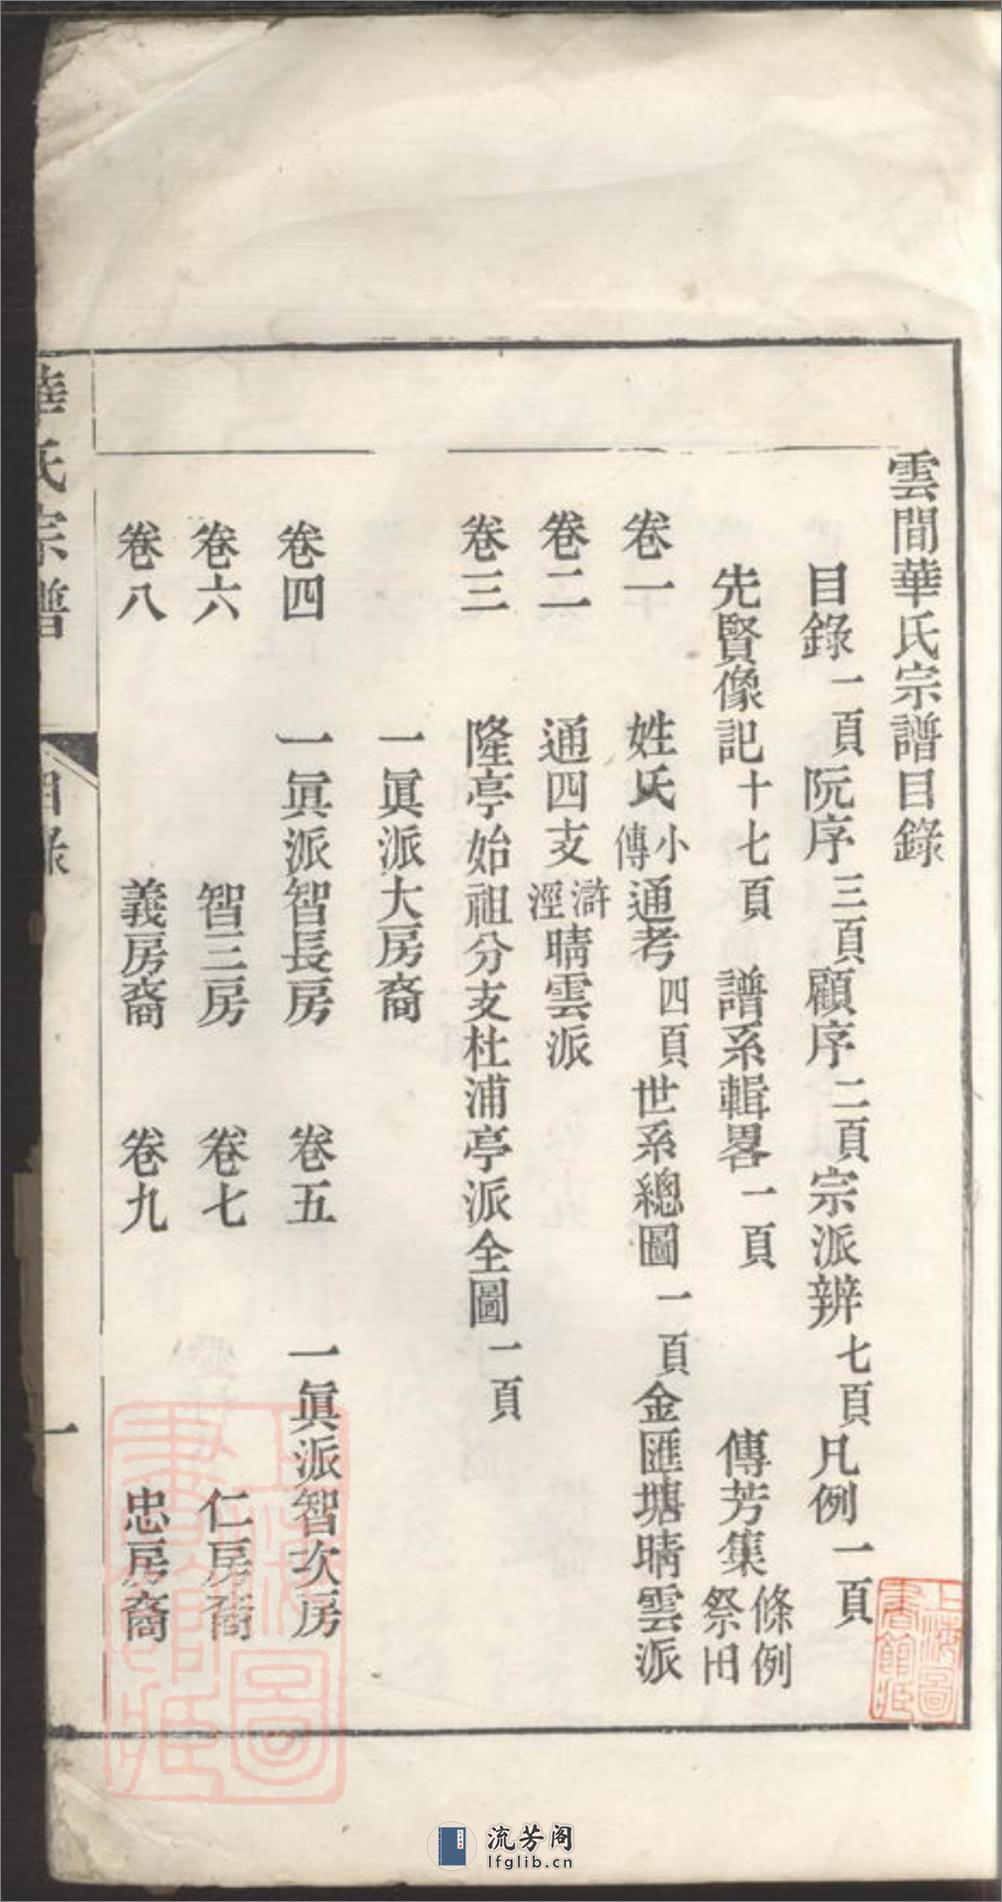 雲間華氏宗譜目錄
目錄一頁阮序三頁顧序二頁宗派辨七頁凡例一頁
先賢像記十七頁 譜系輯畧一頁 傳芳集條例祭田
卷一 姓氏小傳通考四頁世系總圖一頁金匯塘晴雲派
卷二 通四支滸涇晴雲派
卷三 隆亭始祖分支杜浦亭派全圖一頁
一眞派大房裔
卷四 一眞派智長房 卷五 一眞派智次房
卷六 智三房 卷七 仁房裔
卷八 義房裔 卷九 忠房裔
華氏宗譜 目錄 一
上海圖書館藏
上海圖書館藏
流芳阁
lfglib.cn